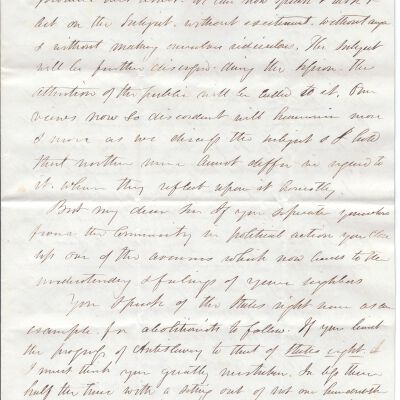 act on the Subject, without excitement, without anger
& without making ourselves ridiculous. The Subject
will be further discussed during the Session. The
attention of the public will be called to it. Our
views now so discordant will harmonise more
& more as we discuss the subject & I hold
that northern men cannot differ in regard to
it, when they reflect upon it honestly
But my dear Sir If you separate yourselves
from the Community in political action you close
up one of the avenues which now leads to the
understanding & feelings of your neighbors
You Speak of the States right men as an
example for abolitionists to follow. If you limit
the progress of Antislavery to that of States right I
I must think you greatly mistaken. In less than
half the time with a setting out of not one hundredth